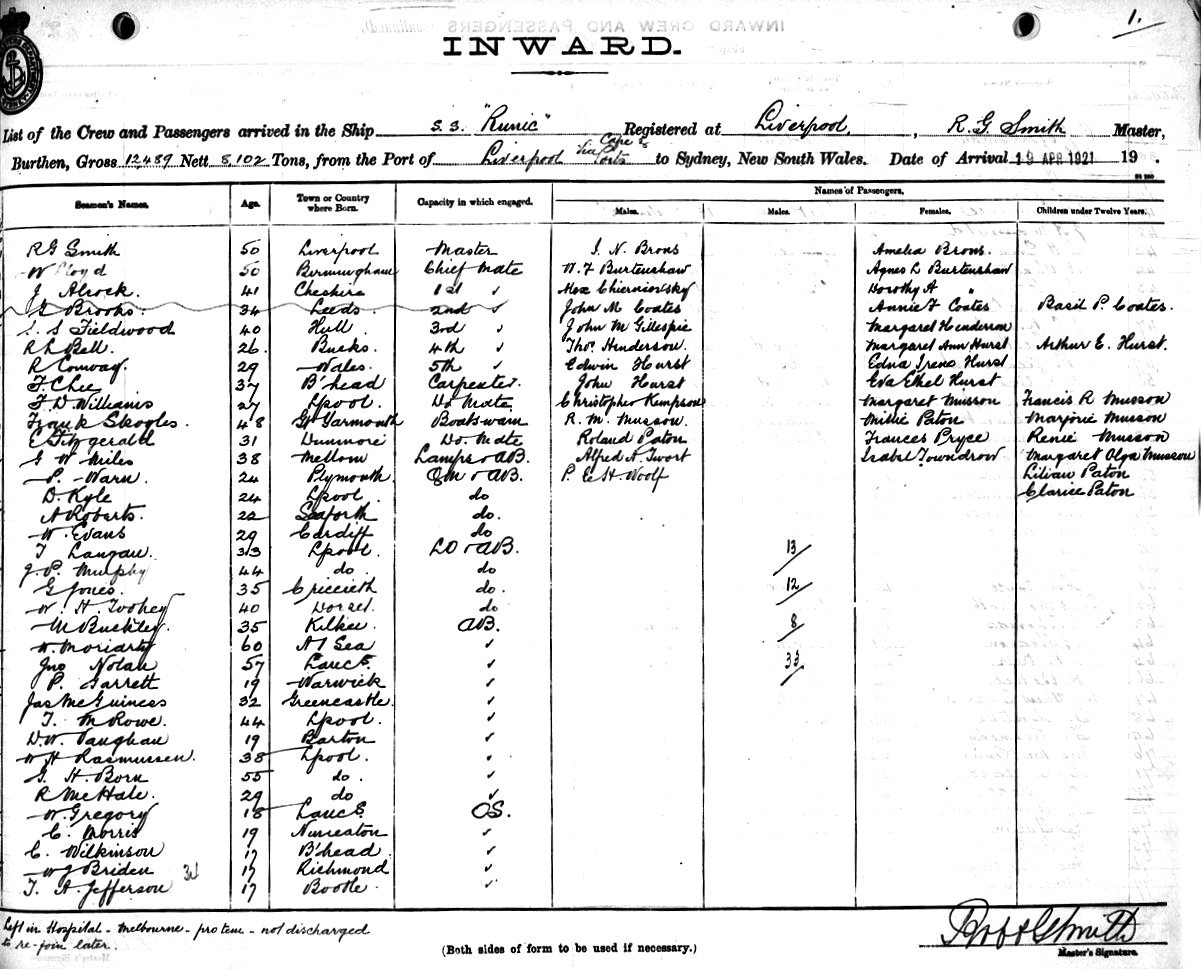 1.
INWARD.
List of the Crew and Passengers arrived in the Ship S.S. "Runic" Registered at Liverpool, R. G. Smith Master,
Burthen, Gross 12489 Nett 8102 Tons, from the Port of Liverpool via Cape to Sydney, New South Wales. Date of Arrival 19 APR 1921 19 .
Names of Passengers,
Seamen's Names. Age. Town or Country where Born. Capacity in which engaged. Males. Males. Females. Children under Twelve Years.
R G Smith 50 Liverpool Master J. N. Brons Amelia Brons.
W Lloyd 50 Birmingham Chief Mate W. F Burtenshaw Agnes L Burtenshaw
J Alcock. 41 Cheshire 1st ✓ Max Chierniovsky Dorothy A "
G Brooks. 34 Leeds 2nd ✓ John M Coates Annie F Coates Basil P. Coates.
S. S Fieldwood 40 Hull 3rd ✓ John M Gillespie Margaret Henderson
R L Bell. 26 Bucks. 4th ✓ Thos. Henderson. Margaret Ann Hurst Arthur E. Hurst.
R Conway. 29 Wales. 5th ✓ Edwin Hurst Edna Irene Hurst
F. Chee 37 B'head Carpenter. John Hurst Eva Ethel Hurst
F. D Williams 27 Lpool. Do Mate Christopher Kempson Margaret Musson Francis R Musson
Frank Skoyles. 48 Gt Yarmouth Boatswain R. M. Musson. Millie Paton Marjorie Musson
E Fitzgerald 31 Dunmore Do. Mate Roland Paton Frances Pryce Renie Musson
G W Miles 38 Mellow Lamps & AB. Alfred N. Twort Isabel Towndrow Margaret Olga Musson
P. Warn 24 Plymouth QM & AB. P. E. H. Woolf Lilian Paton
D. Kyle 24 Lpool. do Clarice Paton
A Roberts. 22 Seaforth do.
W. Evans 29 Cardiff do
T Langan. 33 Lpool. LO & AB. 13
J. P. Murphy 44 do. do
G Jones. 35 Criccieth do. 12
W. H. Toohey 40 Dorset. do
M Buckley. 35 Kilkee AB. 8
W. Moriarty 60 At Sea ✓
Jno Nolan 57 Lancs. ✓ 33
P. Garrett 19 Warwick ✓
Jas McGuiness 32 Greencastle. ✓
T. M Rowe. 44 Lpool. ✓
D. W. Vaughan 19 Barton ✓
W H Rasmussen. 38 Lpool. ✓
G. H. Born 55 do. ✓
R McHale. 29 do ✓
W. Gregory 18 Lancs. OS.
C. Morris 19 Nuneaton ✓
C. Wilkinson 17 B'head ✓
W J Briden 17 Richmond ✓
T. A. Jefferson 17 Bootle ✓
Left in Hospital - Melbourne - pro tem - not discharged
to re-join later.
(Both sides of form to be used if necessary.)
Robt G Smith
Master's Signature.